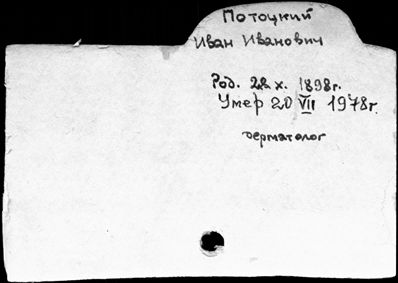 Потоцкий
Иван Иванович
Род. 22 X. 1898г.
Умер 20 VII 1978г.
дерматолог